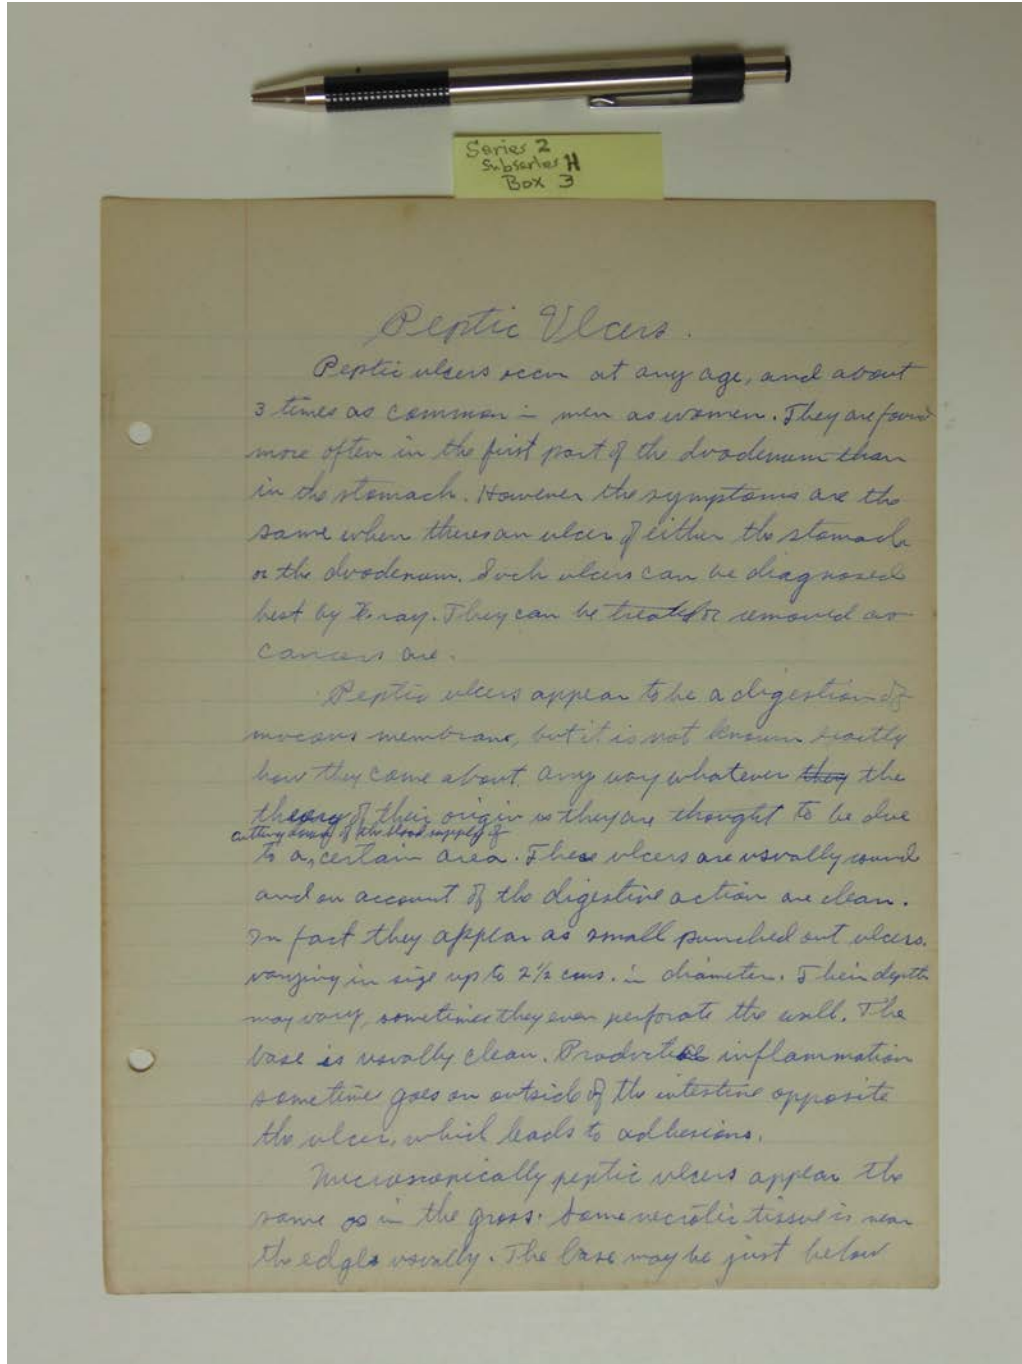 Series 2
Subseries H
Box 3
Peptic Ulcers.
Peptic ulcers occur at any age, and about
3 times as common in men as women. They are found
more often in the first part of the duodenum than
in the stomach. However the symptoms are the
same when theres an ulcer of either the stomach
or the duodenum. Such ulcers can be diagnosed
best by X-ray. They can be treated or removed as
cancers are.
Peptic ulcers appear to be a digestion of
mucous membrane, but it is not known exactly
how they come about. Any way whatever they the
theory of their origin is they are thought to be due
cutting away of the blood supply of
to a certain area. These ulcers are usually round
and on account of the digestive action are clean.
In fact they appear as small punched out ulcers.
varying in size up to 2 1/2 cms. in diameter. Their depth
may vary, sometimes they even perforate the wall. The
base is usually clean. Productive inflammation
sometimes goes on outside of the intestine opposite
the ulcer, which leads to adhesions.
Microscopically peptic ulcers appear the
same as in the gross. Some necrotic tissue is near
the edges usually. The base may be just below